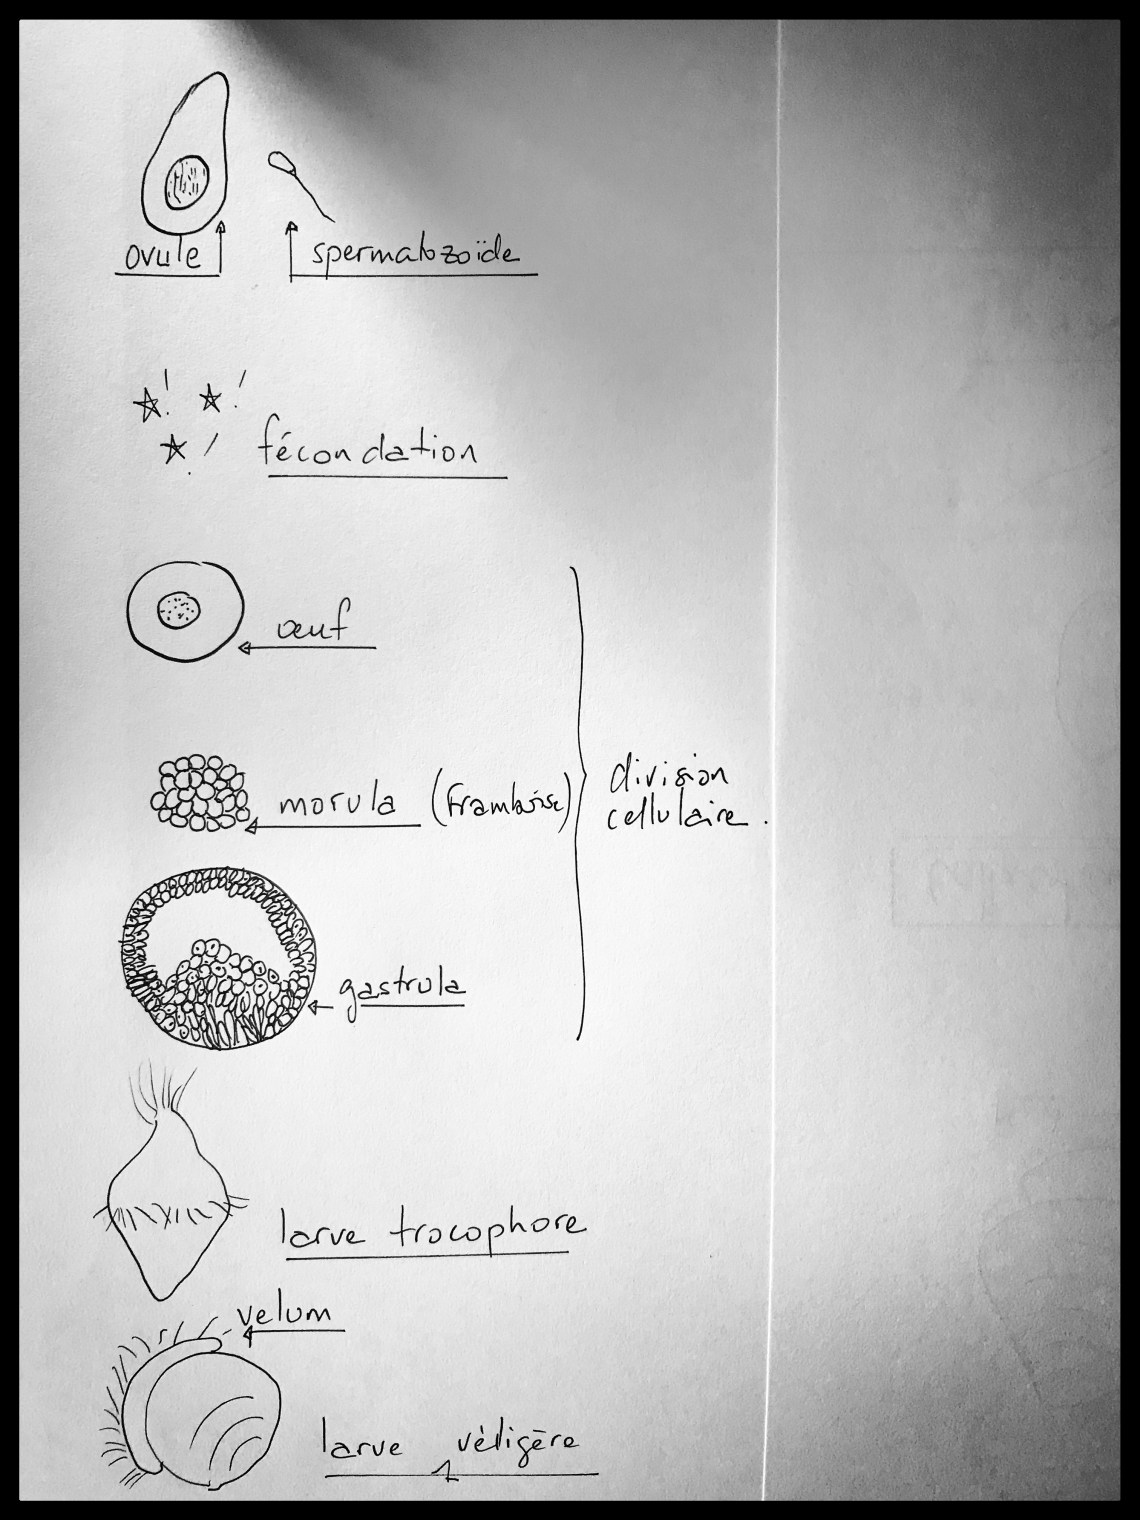 ovule
spermatozoïde
fécondation
œuf
morula (framboise)
division
cellulaire.
gastrula
larve trocophore
velum
larve véligère